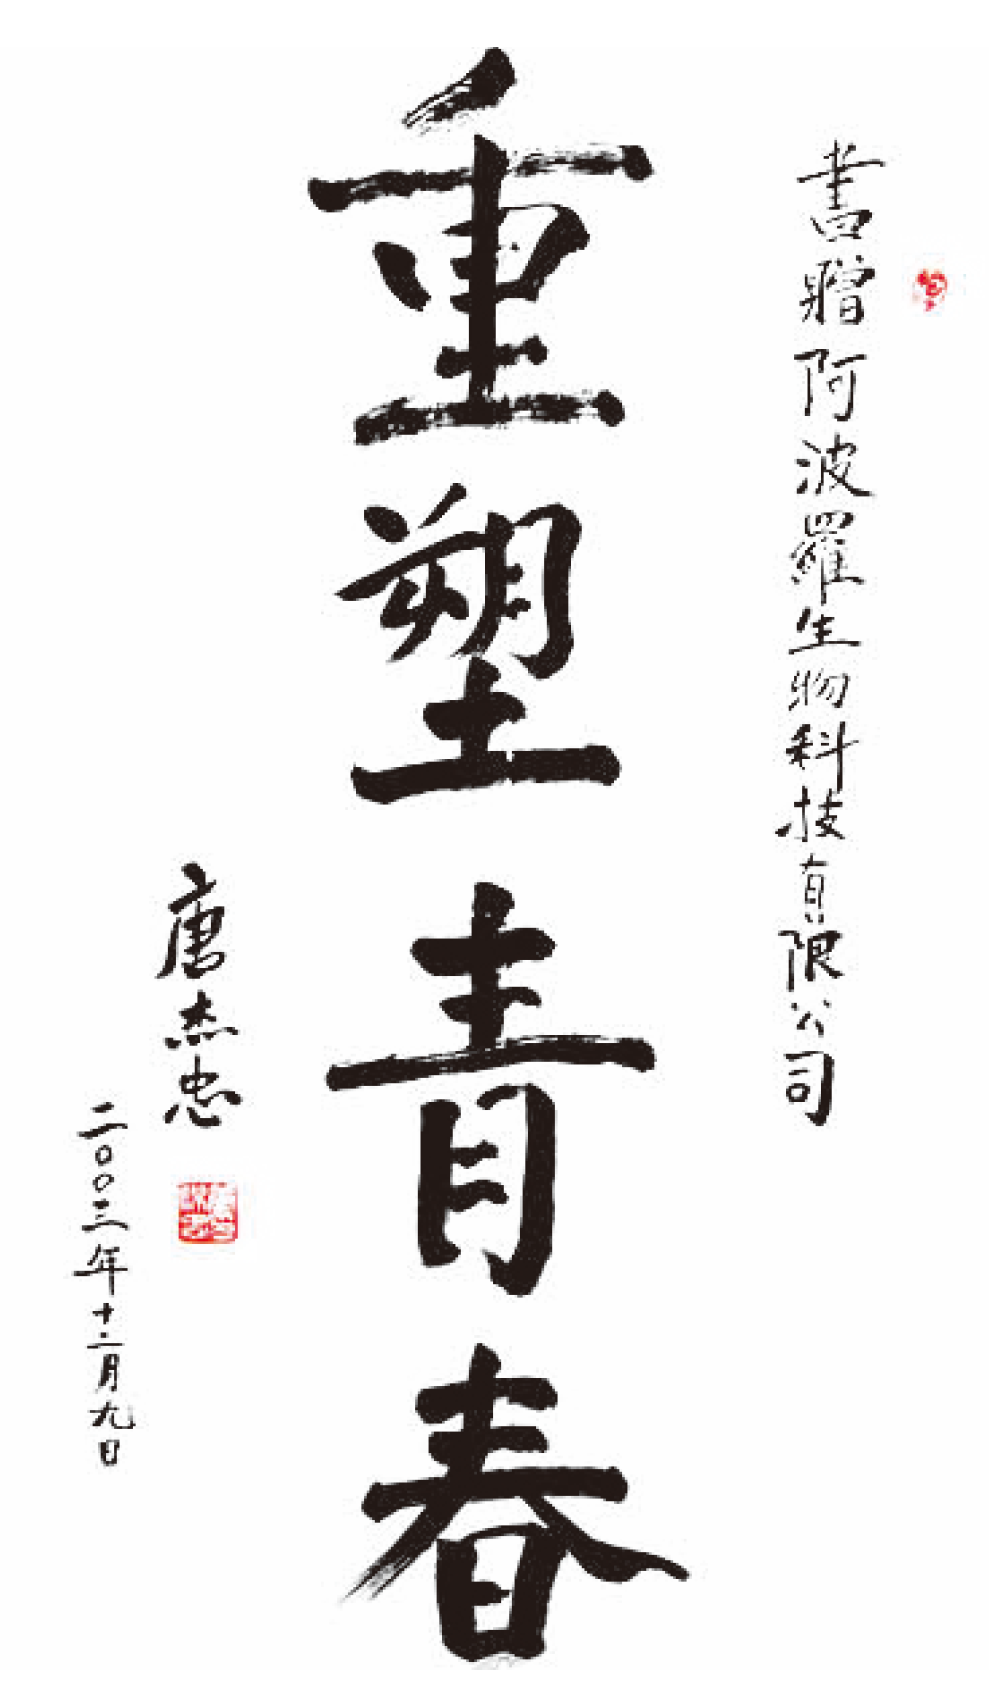 書贈阿波羅生物科技有限公司
重塑青春
唐杰忠
二〇〇三年十二月九日